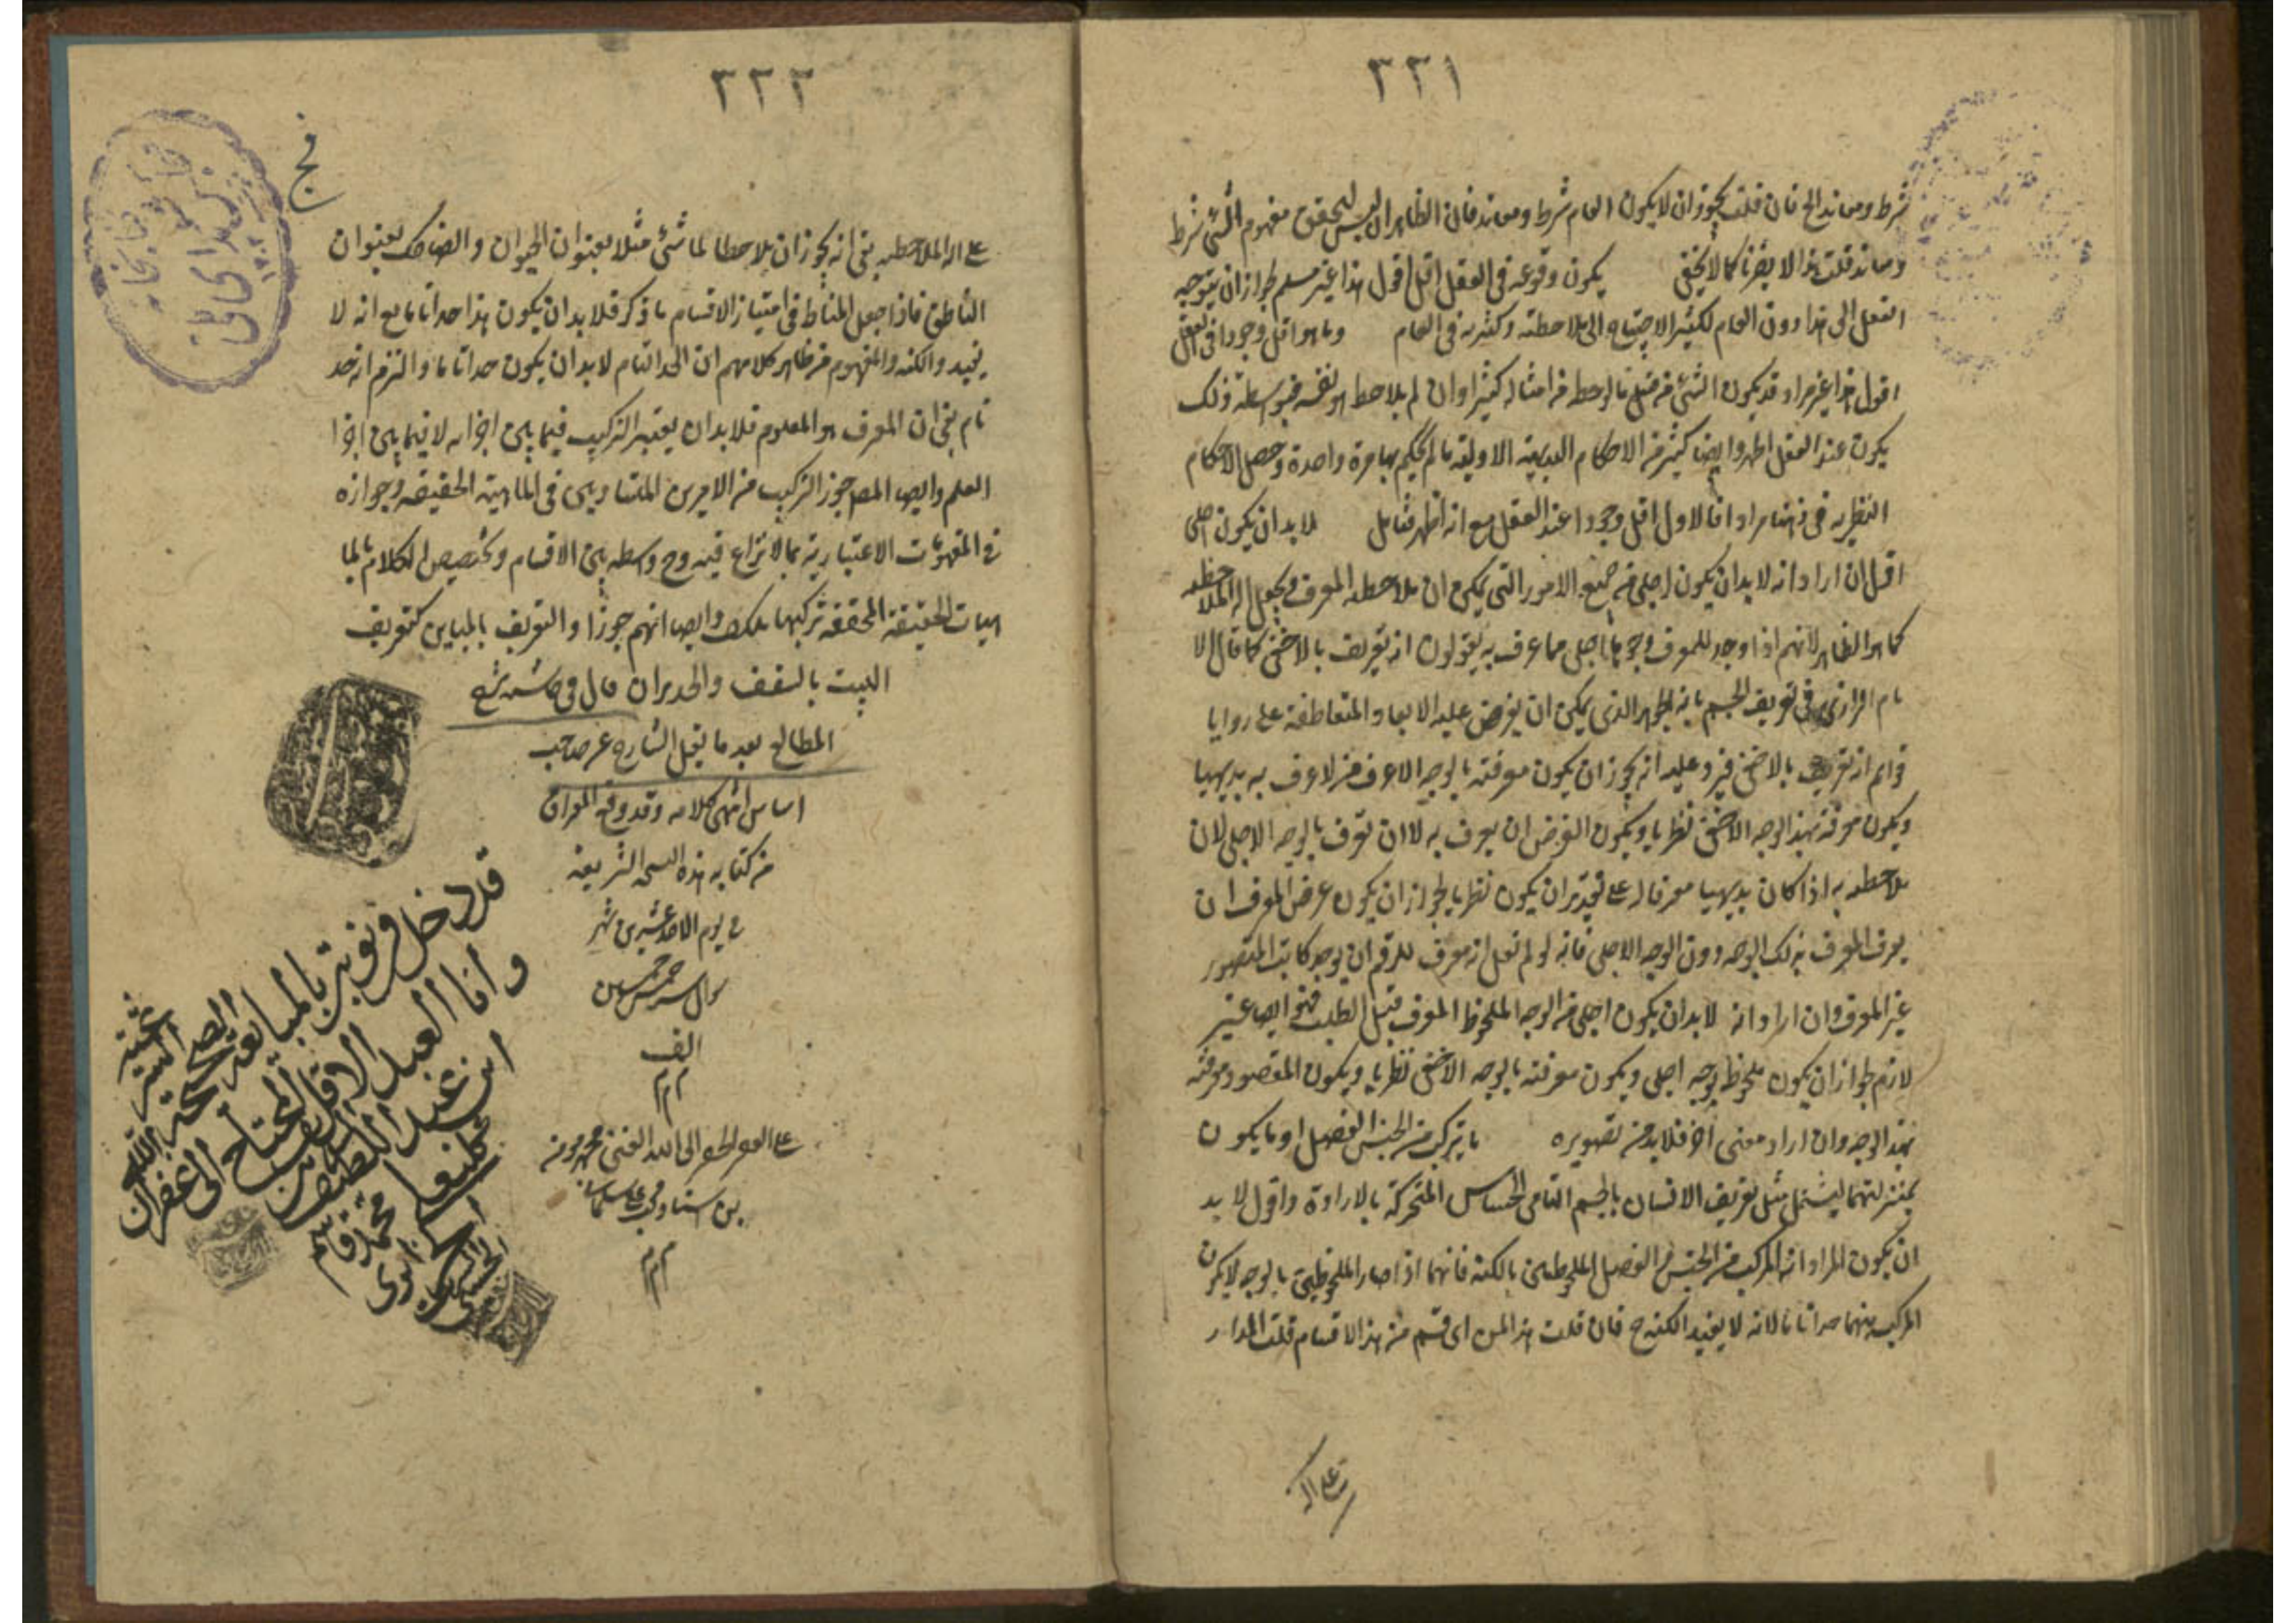 ٣٣١
شرط ومعاند الخ فان قلت يجوز ان لا يكون العام شرط ومعاند فان الظاهر ان ليس لتحقق مفهوم الشئ شرط
ومعاند قلت هذا لا يضرنا كما لا يخفى يكون وقوعه فى العقل اقل اقول هذا غير مسلم لجواز ان يتوجه
العقل الى هذا دون العام لكثير الاحتياج الى ملاحظته وكثرته فى العام وما هو اقل وجودا فى العقل
اقول هذا غير مراد قد يكون الشئ من قبل ما لوحظ من امثاله كثيرا وان لم يلاحظ هو نفسه فبواسطة ذلك
يكون عند العقل اظهر وايضا كثير من الاحكام البديهية الاولية ما لم يحكم بها مرة واحدة وحصل الاحكام
النظرية فى ذهننا مرادا فالاول اقل وجودا عند العقل مع انه اظهر فتامل لا بد ان يكون اجلى
اقول ان اراد انه لا بد ان يكون اجلى من جميع الامور التى يمكن ان ملاحظه المعرف ويجعل الة الملاحظه
كما هو الظاهر لانهم اذا وجد للمعرف وجو ها اجلى مما عرف به يقولون انه تعريف بالاخفى كما قال الا
مام الرازى فى تعريف الجسم بانه الجوهر الذى يمكن ان يفرض عليه الابعاد المتقاطعة على زوايا
قوائم انه تعريف بالاخفى فيرد عليه انه يجوز ان يكون معرفته بالوجه الاعرف من لا عرف به بديهيا
ويكون معرفته بهذا الوجه الاخفى نظريا ويكون الغرض ان يعرف به لا ان تعرف بالوجه الاجلى لان
ملاحظه به اذا كان بديهيا معرفا له على تقدير ان يكون نظريا لجواز ان يكون غرض المعرف ان
يعرف المعرف بذلك الوجه دون الوجه الاجلى فانه لو لم انقل انه معرف للزم ان يوجد كاتب المتصور
غير المعرف وان اراد انه لا بد ان يكون اجلى من الوجه الملحوظ المعرف قبل الطلب فهو ايضا غير
لازم لجواز ان يكون ملحوظا بوجه اجلى ويكون معرفته بالوجه الاخفى نظريا ويكون المقصود معرفته
بهذا الوجه وان اراد معنى اخر فلا بد من تصويره ما يتركب من الجنس الفصل او ما يكون
بمنزلتهما ليشتمل مثل تعريف الانسان بالجسم النامى الحساس المتحركة بالارادة واقول لا بد
ان يكون المراد انه المركب من الجنس والفصل الملحوظين بالكنه فانهما اذا صارا الملحوظين بالوجه لا يكون
المركب منهما حدا تاما لانه لا يفيد الكنه ح فان قلت هذا المر اى قسم من هذا الاقسام قلت المدار
على الـ
٣٣٢
على الة الملاحظه يعنى انه يجوز ان يلاحظا لما شئ مثلا بعنوان الحيوان والضاحك بعنوان
الناطق فاذا جعل المناط فى امتياز الاقسام ما ذكر فلا بد ان يكون هذا حدا تاما مع انه لا
يفيد والكنه والمفهوم من ظاهر كلامهم ان الحد التام لا بد ان يكون حدا تاما والتزم انه حد
تام يعنى ان المعرف هو المعلوم فلا بد ان يعتبر التركيب فيما بين اجزائه لا فيما بين اجزا
العلم وايضا المصـ جوز التركيب من الامرين المتساويين فى الماهية الحقيقه وجوازه
فى المفهومات الاعتبارية مما لا نزاع فيه وح واسطه بين الاقسام وتخصيص الكلام بالما
هيات الحقيقة المحققة تركبها تكلف وايضا انهم جوزا والتعريف بالمباين كتعريف
البيت بالسقف والجدران قال فى حاشية شرح
المطالع بعد ما نقل الشارح عن صاحب
اساس انتهى كلامه وقد وقع الفراق
من كتابه هذه النسخه الشريفة
فى يوم الاحد عشرين شهر
شوال سنه خمس خمسين
الف
م م
على العبد الحقير الى الله الغنى محمد مومن
بن استاد
م م م
قد دخل فى نوبتى بالمبايعة الصحيحة
وانا العبد الاقل المحتاج الى غفران
ابن عبد اللطيف
محمد قاسم